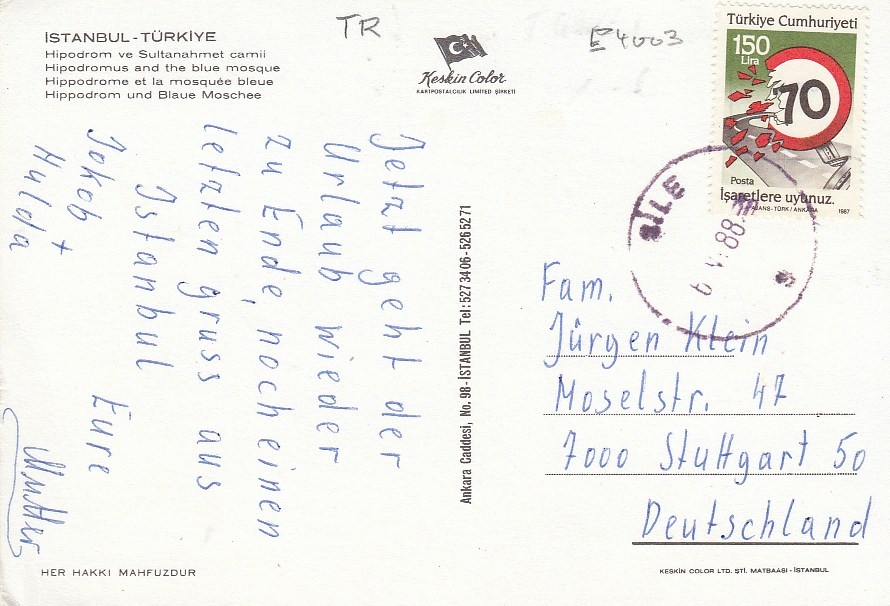 İSTANBUL - TÜRKİYE
Hipodrom ve Sultanahmet camii
Hipodromus and the blue mosque
Hippodrome et la mosquée bleue
Hippodrom und Blaue Moschee
TR
Keskin Color
KARTPOSTALCILIK LIMITED ŞİRKETİ
E4003
Türkiye Cumhuriyeti
150
Lira
70
Posta
İşaretlere uyunuz.
AJANS-TÜRK/ANKARA 1987
ŞİLE
88
Jetzt geht der
Urlaub wieder
zu Ende, noch einen
letzten gruss aus
Istanbul
Eure
Jokob +
Hulda
Mutter
Ankara Caddesi, No. 98-İSTANBUL Tel: 527 34 06 - 526 52 71
Fam.
Jürgen Klein
Moselstr. 47
7000 Stuttgart 50
Deutschland
HER HAKKI MAHFUZDUR
KESKİN COLOR LTD. ŞTİ. MATBAASI - İSTANBUL